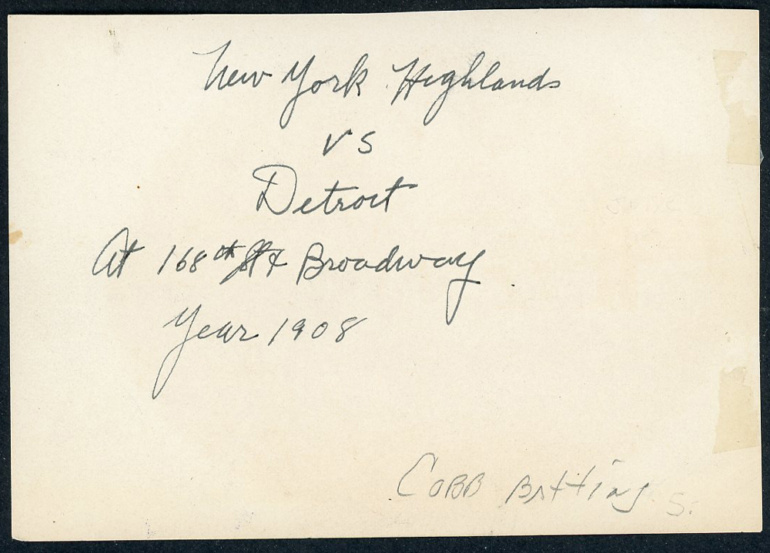 New York Highlands
vs
Detroit
At 168th St & Broadway
Year 1908
Cobb Batting S.